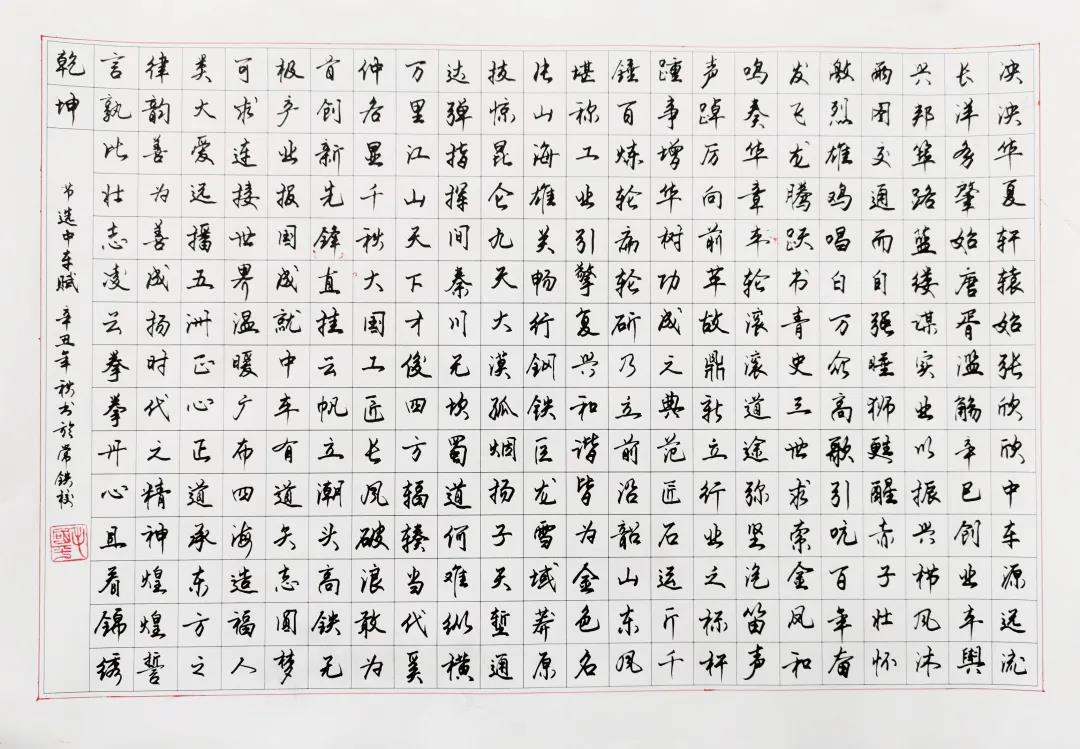 泱泱华夏轩辕始张欣欣中车源远流
长洋务肇始唐胥滥觞辛巳创业车舆
兴邦筚路蓝缕谋实业以振兴栉风沐
雨图交通而自强睡狮甦醒赤子壮怀
激烈雄鸡唱白万众高歌引吭百年奋
发飞龙腾跃书青史三世求索金凤和
鸣奏华章车轮滚滚道途弥坚汽笛声
声踔厉向前革故鼎新立行业之标杆
踵事增华树功成元典范匠石运斤千
锤百炼轮轮斫乃立前沿韶山东风
堪称工业引擎复兴和谐皆为金色名
片山海雄关畅行钢铁巨龙雪域莽原
技惊昆仑九天大漠孤烟扬子天堑通
达弹指挥间秦川无坎蜀道何难纵横
万里江山天下才俊四方辐辏当代奚
仲名显千秋大国工匠长风破浪敢为
首创新先锋直挂云帆立潮头高铁无
极产业报国成就中车有道矢志圆梦
可求连接世界温暖广布四海造福人
类大爱远播五洲正心正道承东方之
律韵善为善成扬时代之精神煌煌誓
言孰比壮志凌云拳拳丹心且看锦绣
乾坤
节选中车赋辛丑年秋书於常铁校